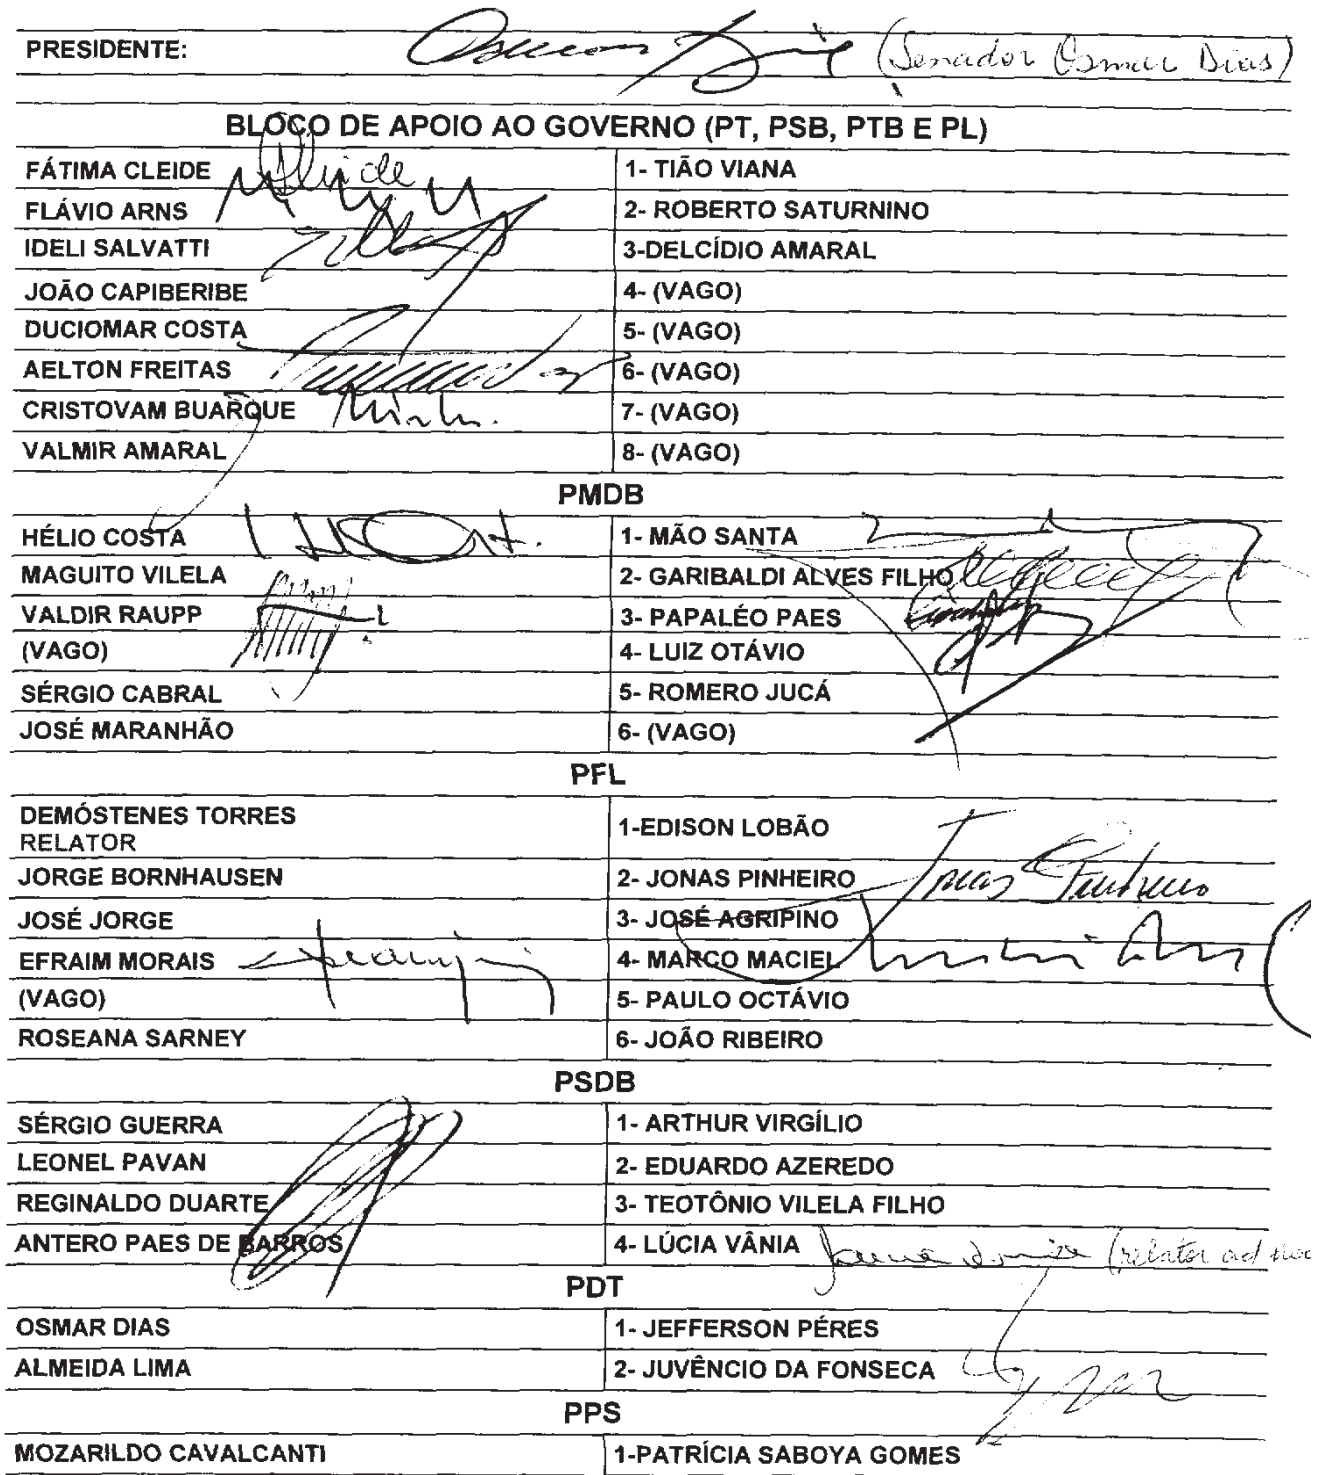 PRESIDENTE: (Senador Osmar Dias)
BLOCO DE APOIO AO GOVERNO (PT, PSB, PTB E PL)
FÁTIMA CLEIDE 1- TIÃO VIANA
FLÁVIO ARNS 2- ROBERTO SATURNINO
IDELI SALVATTI 3-DELCÍDIO AMARAL
JOÃO CAPIBERIBE 4- (VAGO)
DUCIOMAR COSTA 5- (VAGO)
AELTON FREITAS 6- (VAGO)
CRISTOVAM BUARQUE 7- (VAGO)
VALMIR AMARAL 8- (VAGO)
PMDB
HÉLIO COSTA 1- MÃO SANTA
MAGUITO VILELA 2- GARIBALDI ALVES FILHO
VALDIR RAUPP 3- PAPALÉO PAES
(VAGO) 4- LUIZ OTÁVIO
SÉRGIO CABRAL 5- ROMERO JUCÁ
JOSÉ MARANHÃO 6- (VAGO)
PFL
DEMÓSTENES TORRES
RELATOR 1-EDISON LOBÃO
JORGE BORNHAUSEN 2- JONAS PINHEIRO Jonas Pinheiro
JOSÉ JORGE 3- JOSÉ AGRIPINO
EFRAIM MORAIS 4- MARCO MACIEL
(VAGO) 5- PAULO OCTÁVIO
ROSEANA SARNEY 6- JOÃO RIBEIRO
PSDB
SÉRGIO GUERRA 1- ARTHUR VIRGÍLIO
LEONEL PAVAN 2- EDUARDO AZEREDO
REGINALDO DUARTE 3- TEOTÔNIO VILELA FILHO
ANTERO PAES DE BARROS 4- LÚCIA VÂNIA (relator ad hoc
PDT
OSMAR DIAS 1- JEFFERSON PÉRES
ALMEIDA LIMA 2- JUVÊNCIO DA FONSECA
PPS
MOZARILDO CAVALCANTI 1-PATRÍCIA SABOYA GOMES